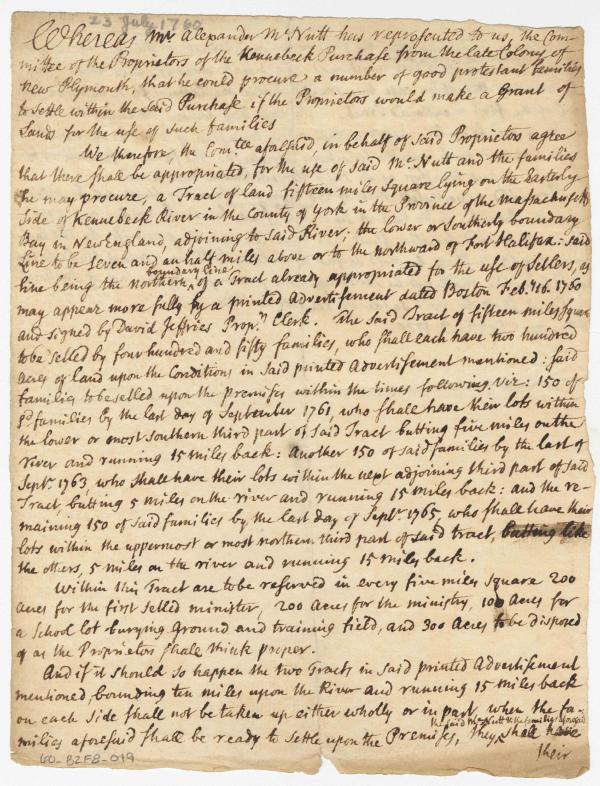 23 July 1760
Whereas Mr Alexander McNutt has represented to us, the Com-
mittee of the Proprietors of the Kennebeck Purchase from the late Colony of
New Plymouth, that he could procure a number of good protestant families
to settle within the said Purchase if the Proprietors would make a Grant of
Lands for the use of such families
We therefore, the Comtee aforesaid, in behalf of said Proprietors agree
that there shall be appropriated, for the use of said McNutt and the families
he may procure, a Tract of land fifteen miles square lying on the Easterly
side of Kennebeck River in the County of York in the Province of the Massachusetts
Bay in New England, adjoining to said River: the lower or Southerly boundary
line to be seven and an half miles above or to the northward of Fort Halifax: said
boundary line
line being the northern ‸ of a Tract already appropriated for the use of Settlers, as
may appear more fully by a printed Advertisement dated Boston Feby 16. 1760
and signed by David Jeffries Propn Clerk. The said Tract of fifteen miles square
to be settled by four hundred and fifty families, who shall each have two hundred
acres of land upon the Conditions in said printed Advertisement mentioned: said
families to be settled upon the premises within the times following viz: 150 of
sd families by the last day of September 1761, who shall have their lots within
the lower or most southern third part of said Tract butting five miles on the
river and running 15 miles back: Another 150 of said families by the last of
Septr 1763, who shall have their lots within the next adjoining third part of said
Tract, butting 5 miles on the river and running 15 miles back: and the re-
maining 150 of said families by the last day of Septr 1765, who shall have their
lots within the uppermost or most northern third part of said tract, butting like
the others, 5 miles on the river and running 15 miles back.
Within this Tract are to be reserved in every five miles square 200
Acres for the first settled minister, 200 Acres for the ministry, 100 Acres for
a School lot burying Ground and training field, and 300 Acres to be disposed
of as the Proprietors shall think proper.
And if it should so happen the two Tracts in said printed Advertisement
mentioned, bounding ten miles upon the River and running 15 miles back
on each side shall not be taken up either wholly or in part, when the fa-
the said McNutt & the families aforesaid
milies aforesaid shall be ready to settle upon the Premises, they shall have
their
60-B2F8-019